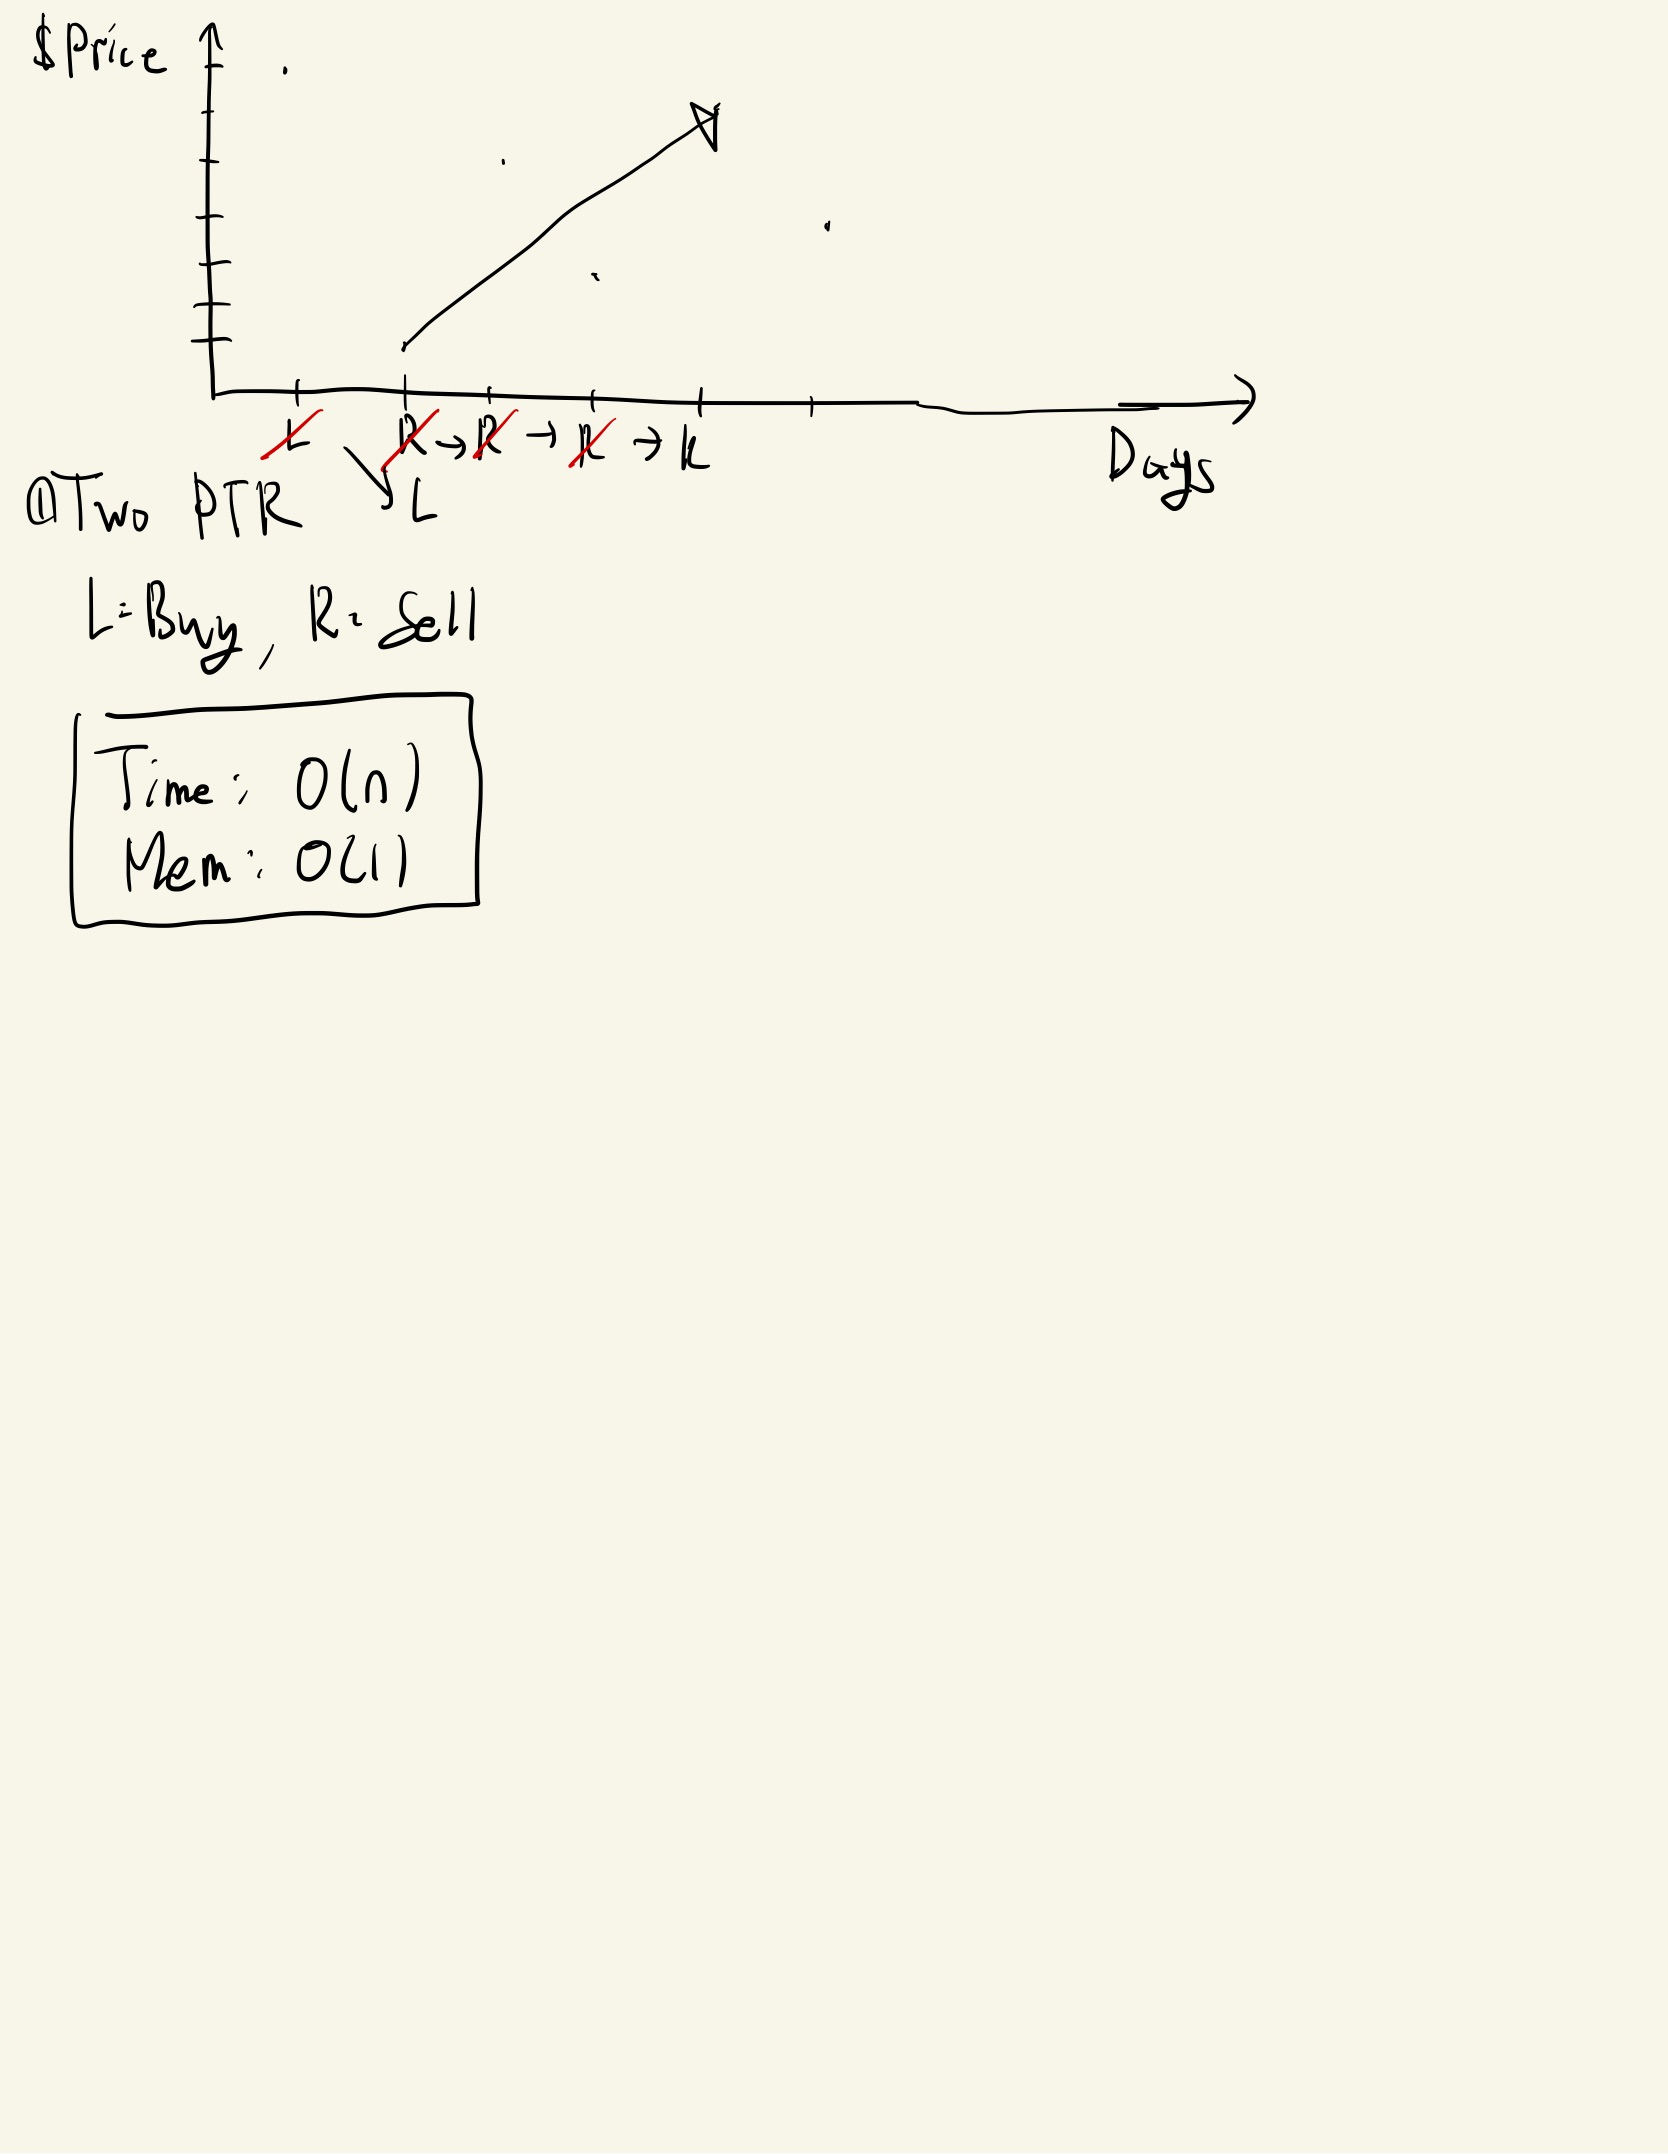 $Price
L R → R → R → R
Days
① Two PTR L
L = Buy, R = Sell
Time: O(n)
Mem: O(1)